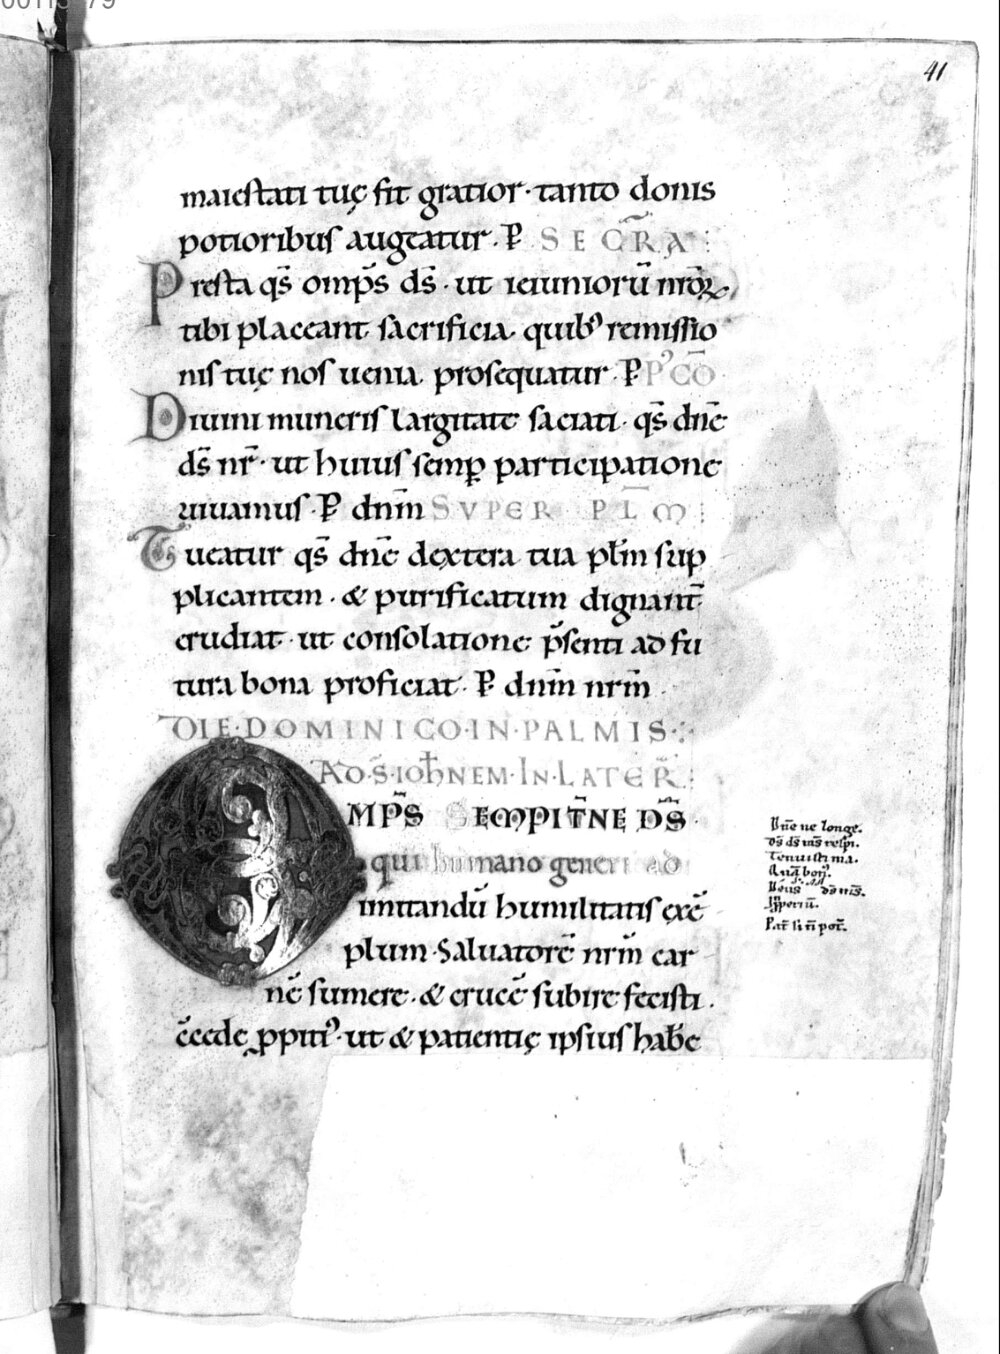 41
maiestati tuę sit gratior · tanto donis
potioribus augeatur · P̄ SECR̃A :
Presta qs̄ omp̄s ds̄ · ut ieiuniorū nr̄oꝝ
tibi placeant sacrificia · quibꝰ remissio
nis tuę nos uenia prosequatur · P̄ PꝰCŌ
Diuini muneris largitate saciati · qs̄ dn̄e
ds̄ nr̄ · ut huius semp̱ participatione
uiuamus · P̄ dnm̄ SUPER PL̄M :
Tueatur qs̄ dn̄e dextera tua pl̄m sup
plicantem · & purificatum dignant̄
erudiat · ut consolatione p̄senti ad fu
tura bona proficiat · P̄ dnm̄ nrm̄
DIE · DOMINICO · IN · PALMIS :
AD · S̄ · IOH̄NEM · IN · LATER̄ :
OMP̄S SEMPIT̄NE D̄S ·
qui humano generi ad
imitandū humilitatis exē
plum · Saluatorē nrm̄ car
nē sumere · & crucē subire fecisti ·
c̄cede ꝓpitiꝰ · ut & patientię ipsius habe
Dn̄e ne longe.
Ds̄ ds̄ ms̄ respi.
Tenuisti ma.